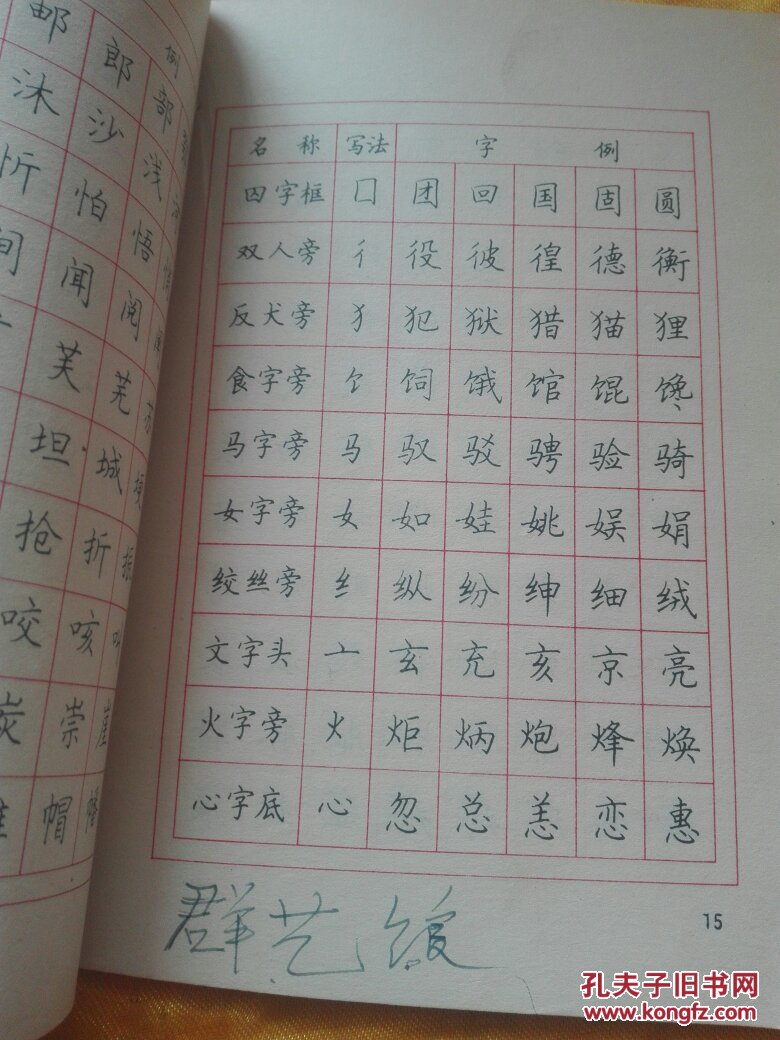 例
邮 郎 部
沐 沙 浅
忻 怕 悟
闻 阅
芙 芜 苏
坦 城 埂
抢 折 振
咬 咳 叫
炭 崇 崖
帽 幢
名 称 写法 字 例
囚字框 囗 团 回 国 固 圆
双人旁 彳 役 彼 徨 德 衡
反犬旁 犭 犯 狱 猎 猫 狸
食字旁 饣 饲 饿 馆 馄 馋
马字旁 马 驭 驳 骋 验 骑
女字旁 女 如 娃 姚 娱 娟
绞丝旁 纟 纵 纷 绅 细 绒
文字头 亠 玄 充 亥 京 亮
火字旁 火 炬 炳 炮 烽 焕
心字底 心 忽 总 恙 恋 惠
群艺馆
15
孔夫子旧书网
www.kongfz.com